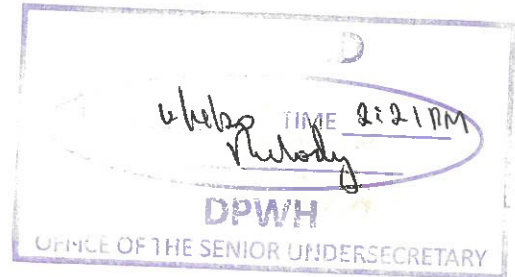 D
TIME 2:21 PM
Melody
DPWH
OFFICE OF THE SENIOR UNDERSECRETARY